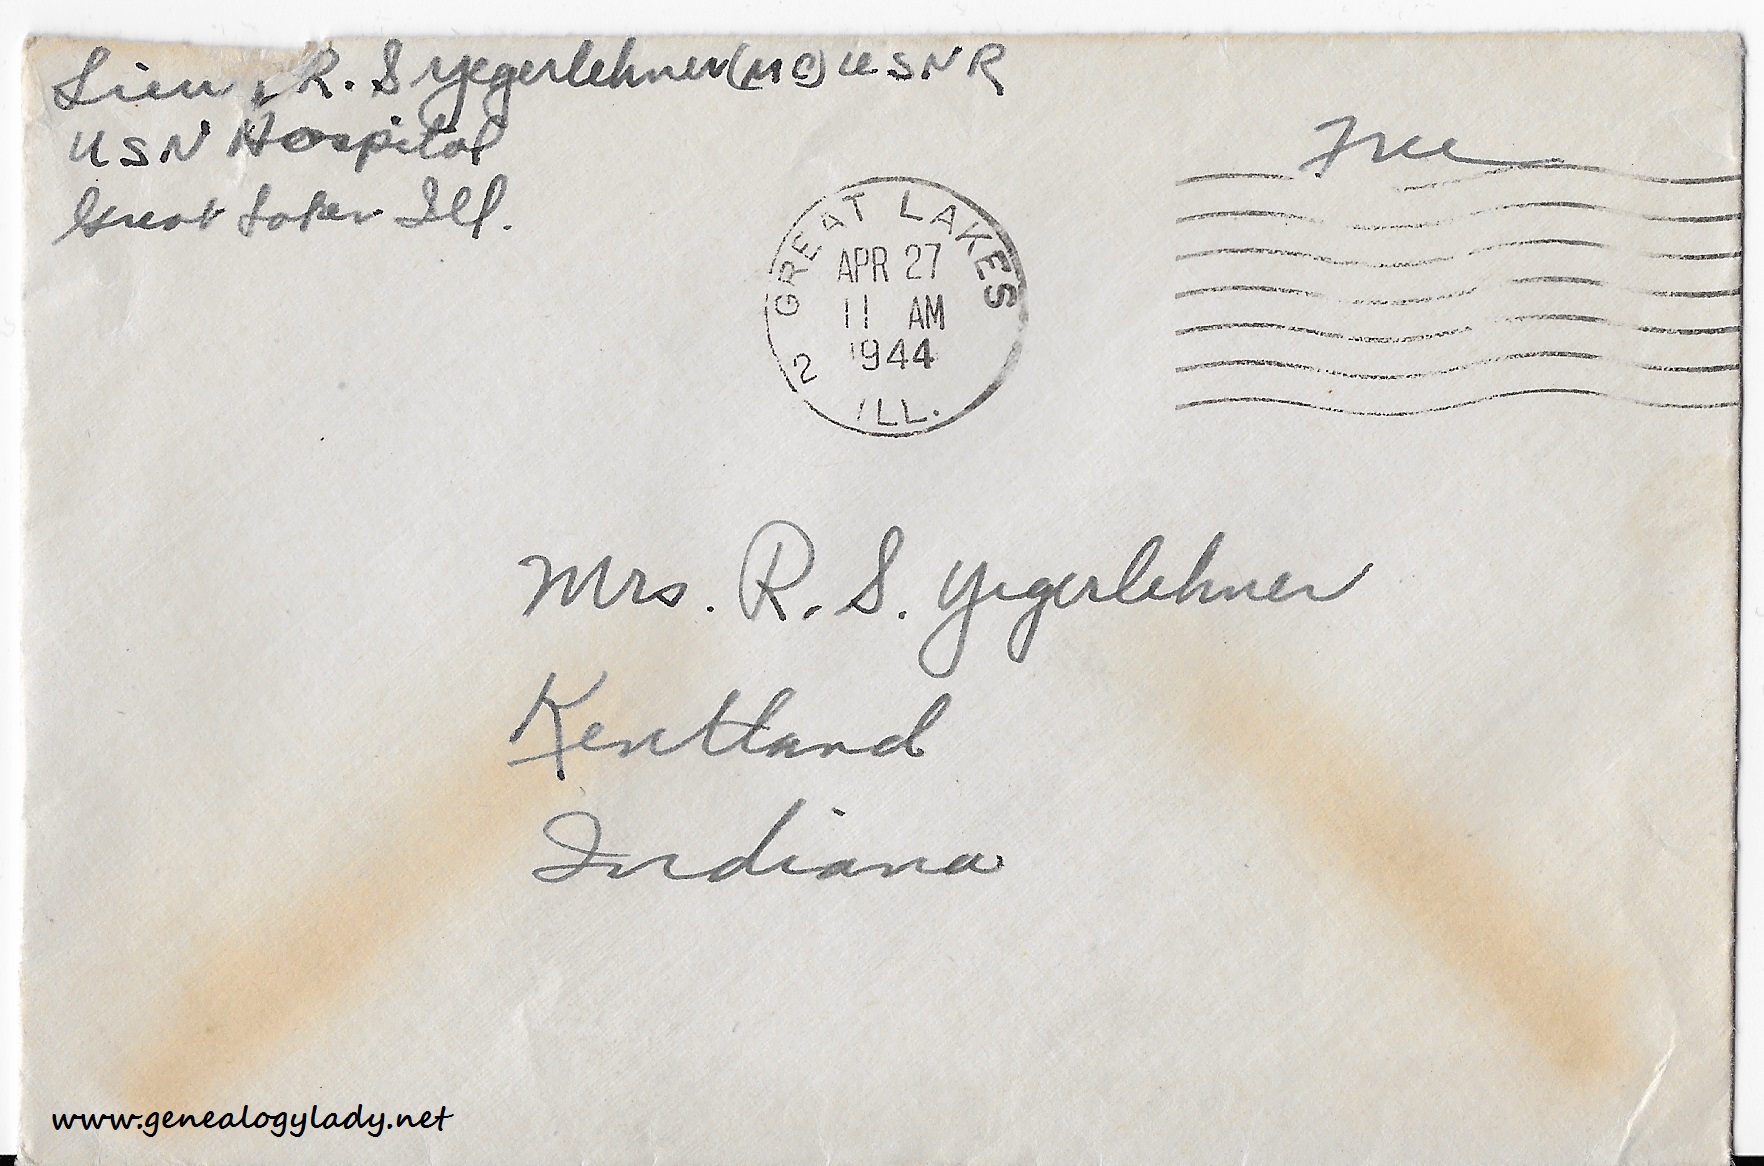 Lieu , R. S Yegerlehner (MC) USNR
USN Hospital
Great Lakes Ill.
Free
GREAT LAKES
APR 27
11 AM
1944
2
ILL.
Mrs. R. S. Yegerlehner
Kentland
Indiana
www.genealogylady.net